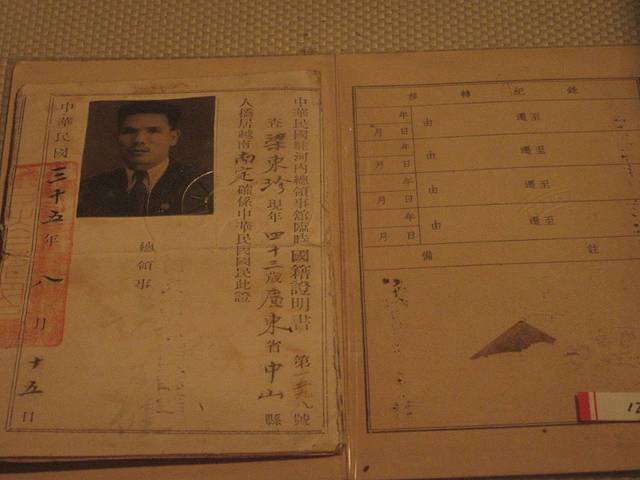 中華民國駐河內總領事館臨時國籍證明書 第 號
查梁東珍現年四十三歲廣東省中山縣
人僑居越南南定確係中華民國國民此證
總領事
中華民國三十五年八月十五日
移轉紀錄
年月日 由 遷至
年月日 由 遷至
年月日 由 遷至
年月日 由 遷至
備註
12